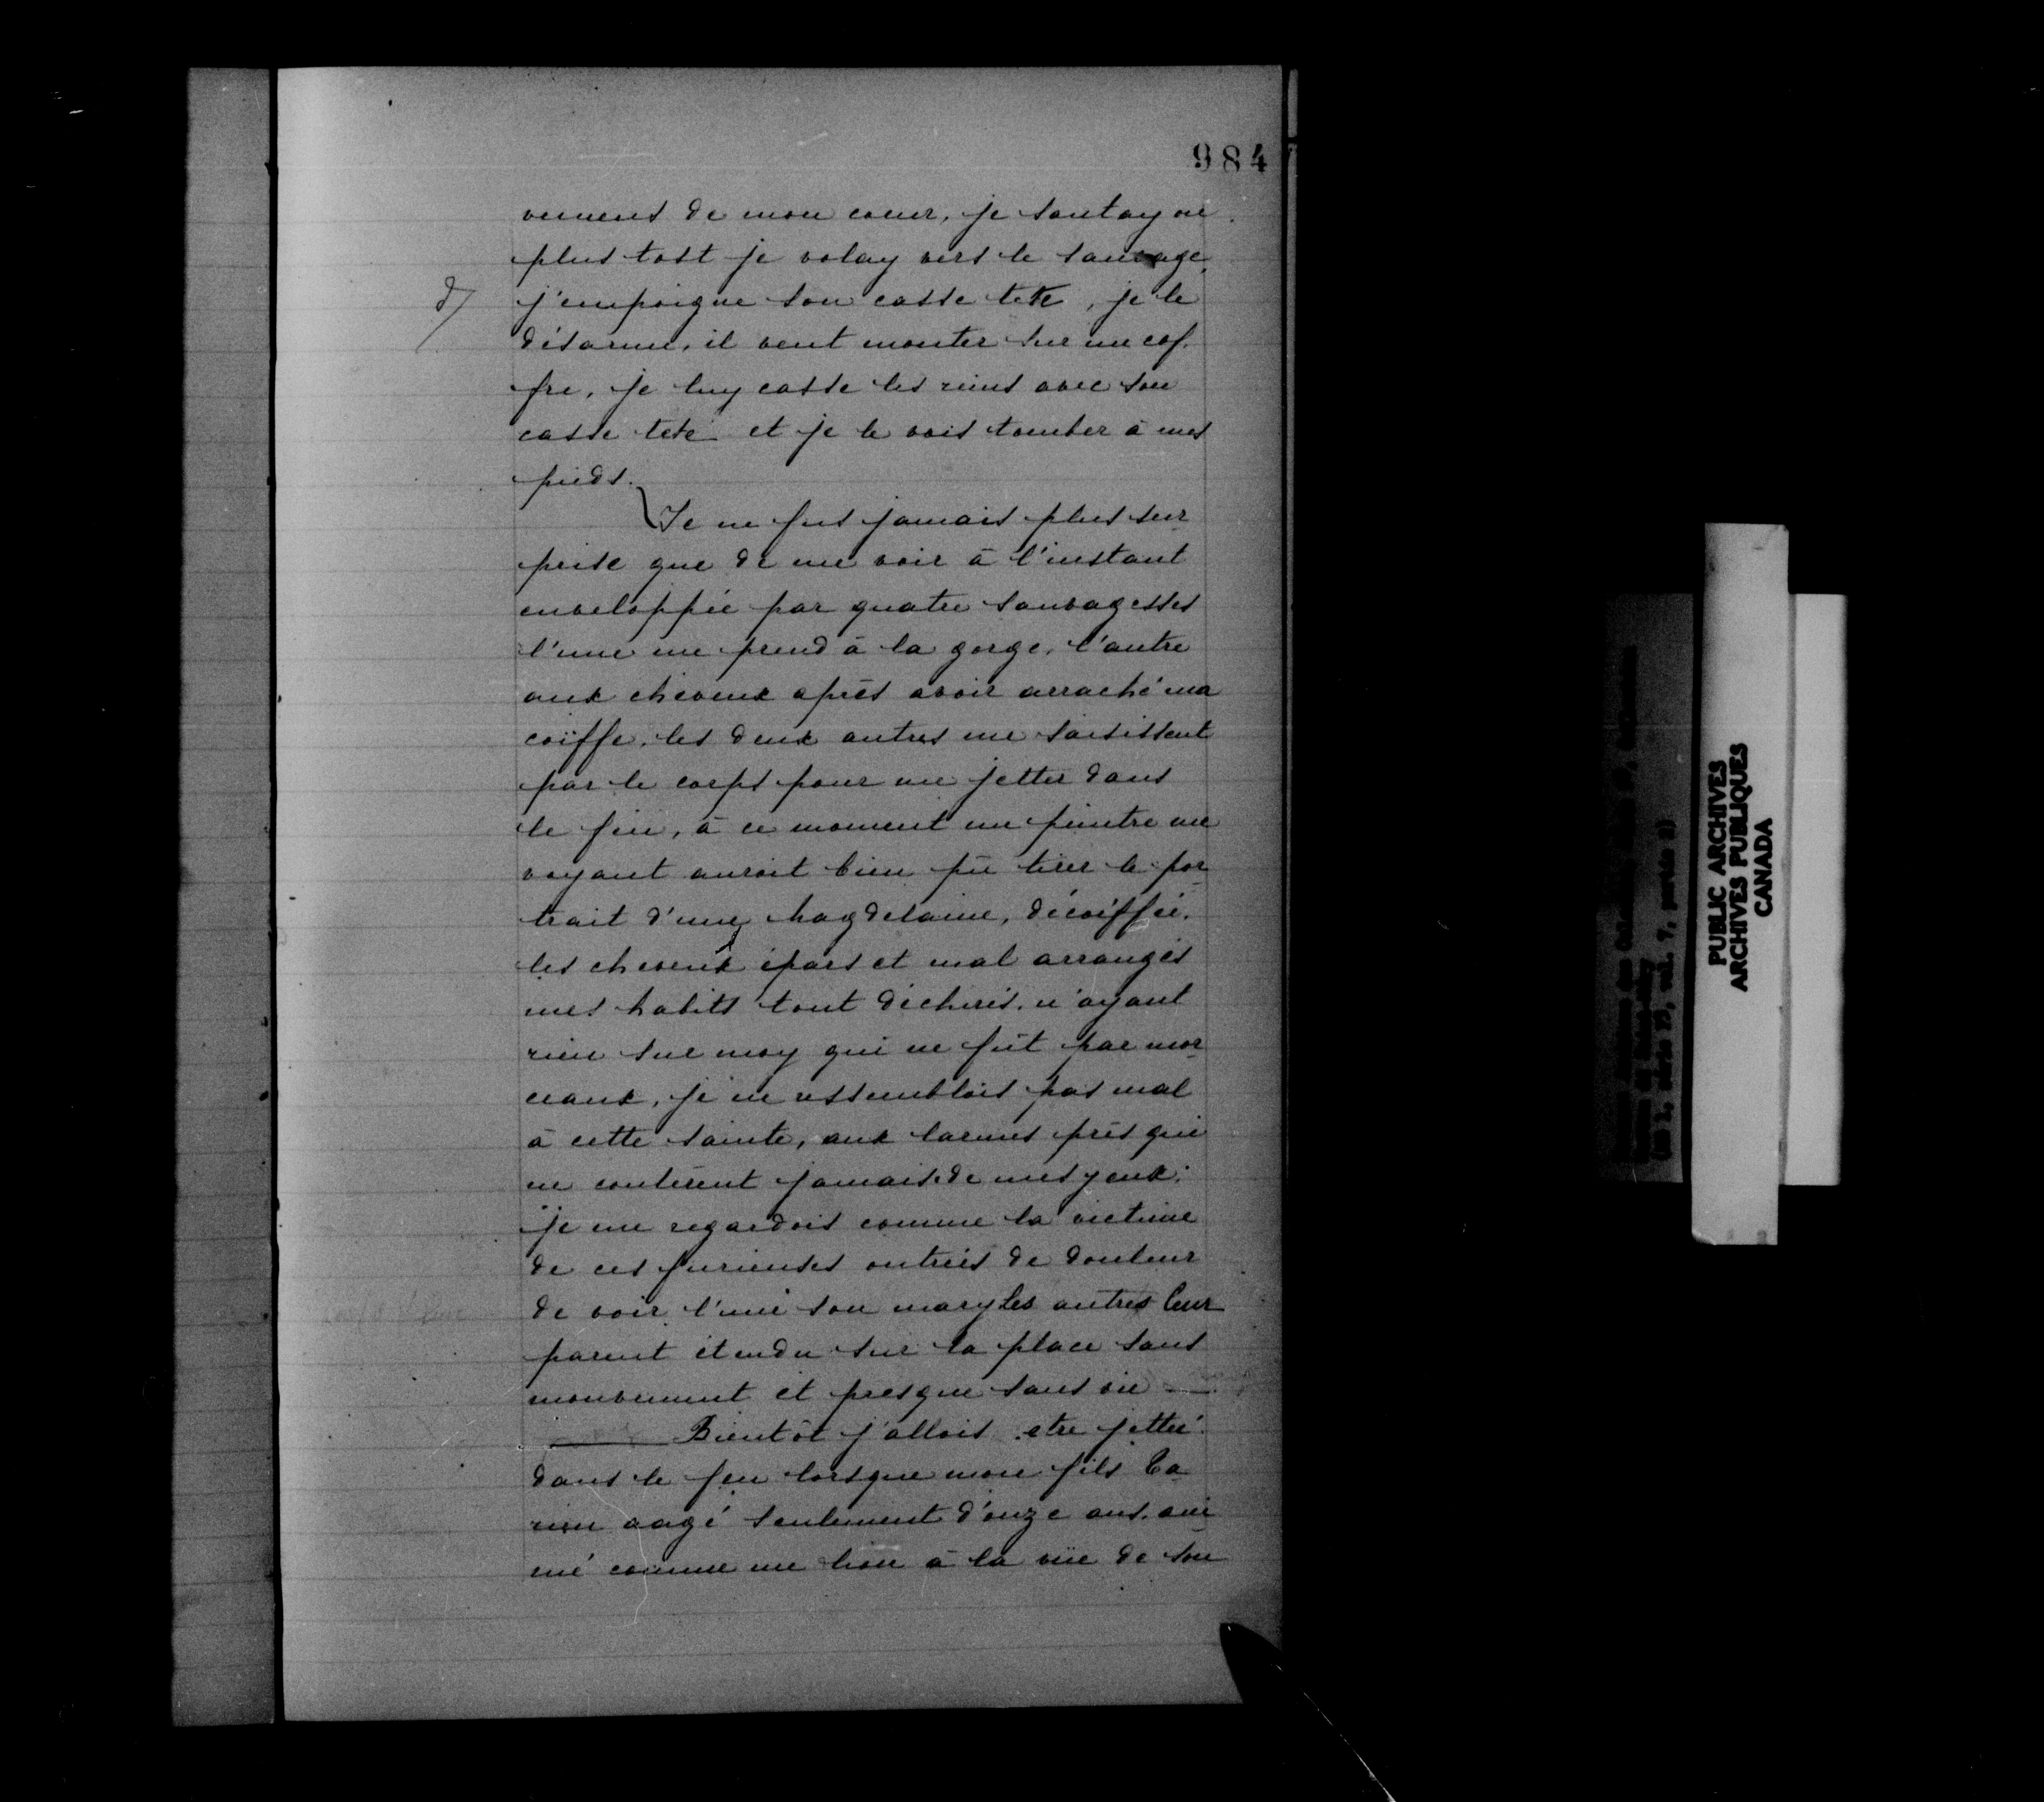 984
vemens de mon coeur, je sautay ou
plus tost je volay vers le sauvage,
d/
j'empoigne son casse tete, je le
désarme, il veut monter sur un cof
fre, je luy casse les reins avec son
casse tete et je le vois tomber à mes
pieds.
Je ne fus jamais plus sur
prise que de me voir à l'instant
enveloppée par quatre sauvagesses
l'une me prend à la gorge, l'autre
aux cheveux après avoir arraché ma
coïffe, les deux autres me saisissent
par le corps pour me jetter dans
le feu, à ce moment un peintre me
voyant auroit bien pû tirer le por
trait d'une Magdelaine, décoiffée,
les cheveux épars et mal arrangés
mes habits tout déchirés, n'ayant
rien sur moy qui ne fût par mor
ceaux, je ne ressemblois pas mal
à cette sainte, aux larmes près qui
ne coulèrent jamais de mes yeux;
je me regardois comme la victime
de ces furieuses outrées de douleur
de voir l'une son mary les autres leur
parent étendu sur la place sans
mouvement et presque sans vie —
Bientôt j'allois etre jettée
dans le feu lorsque mon fils Ta
rieu aagé seulement d'ouze ans, ani
mé comme un lion à la vüe de son
PUBLIC ARCHIVES
ARCHIVES PUBLIQUES
CANADA